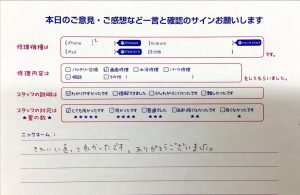 本日のご意見・ご感想など一言と確認のサインお願いします
修理機種は
iPhone 12
Android
iPad
その他
修理内容は
バッテリー交換 画面修理 水没修理 パーツ修理
相談 その他
をしてもらいました。
スタッフの説明は
わかりやすかったです 理解できました 少しわかりにくかったです 難しかったです
スタッフの対応は
★星の数★
とても良かったです 良かったです 普通でした あまり良くなかったです 良くなかったです
ニックネーム：
きれいに直って良かったです。ありがとうございました。